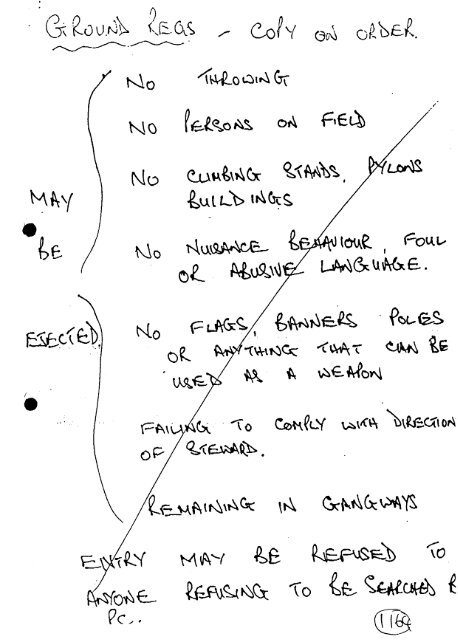 GROUND REGS - COPY ON ORDER.
NO THROWING
NO PERSONS ON FIELD
NO CLIMBING STANDS, PYLONS
BUILDINGS
MAY
BE
NO NUISANCE BEHAVIOUR, FOUL
OR ABUSIVE LANGUAGE.
EJECTED.
NO FLAGS, BANNERS POLES
OR ANYTHING THAT CAN BE
USED AS A WEAPON
FAILING TO COMPLY WITH DIRECTION
OF STEWARD.
REMAINING IN GANGWAYS
ENTRY MAY BE REFUSED TO
ANYONE REFUSING TO BE SEARCHED B
PC..